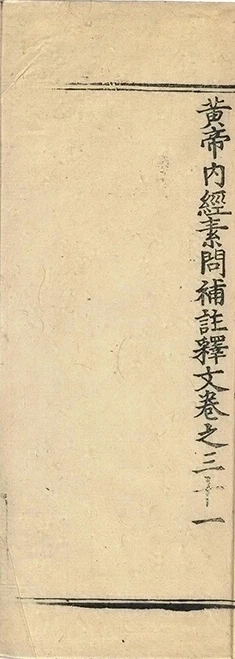 黃帝內經素問補註釋文卷之三十一